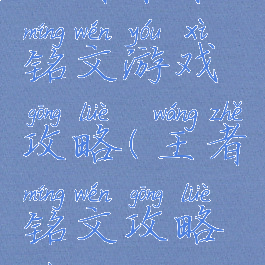 míng wén yóu xì
铭文游戏
gōng lüè wáng zhě
攻略(王者
míng wén gōng lüè
铭文攻略